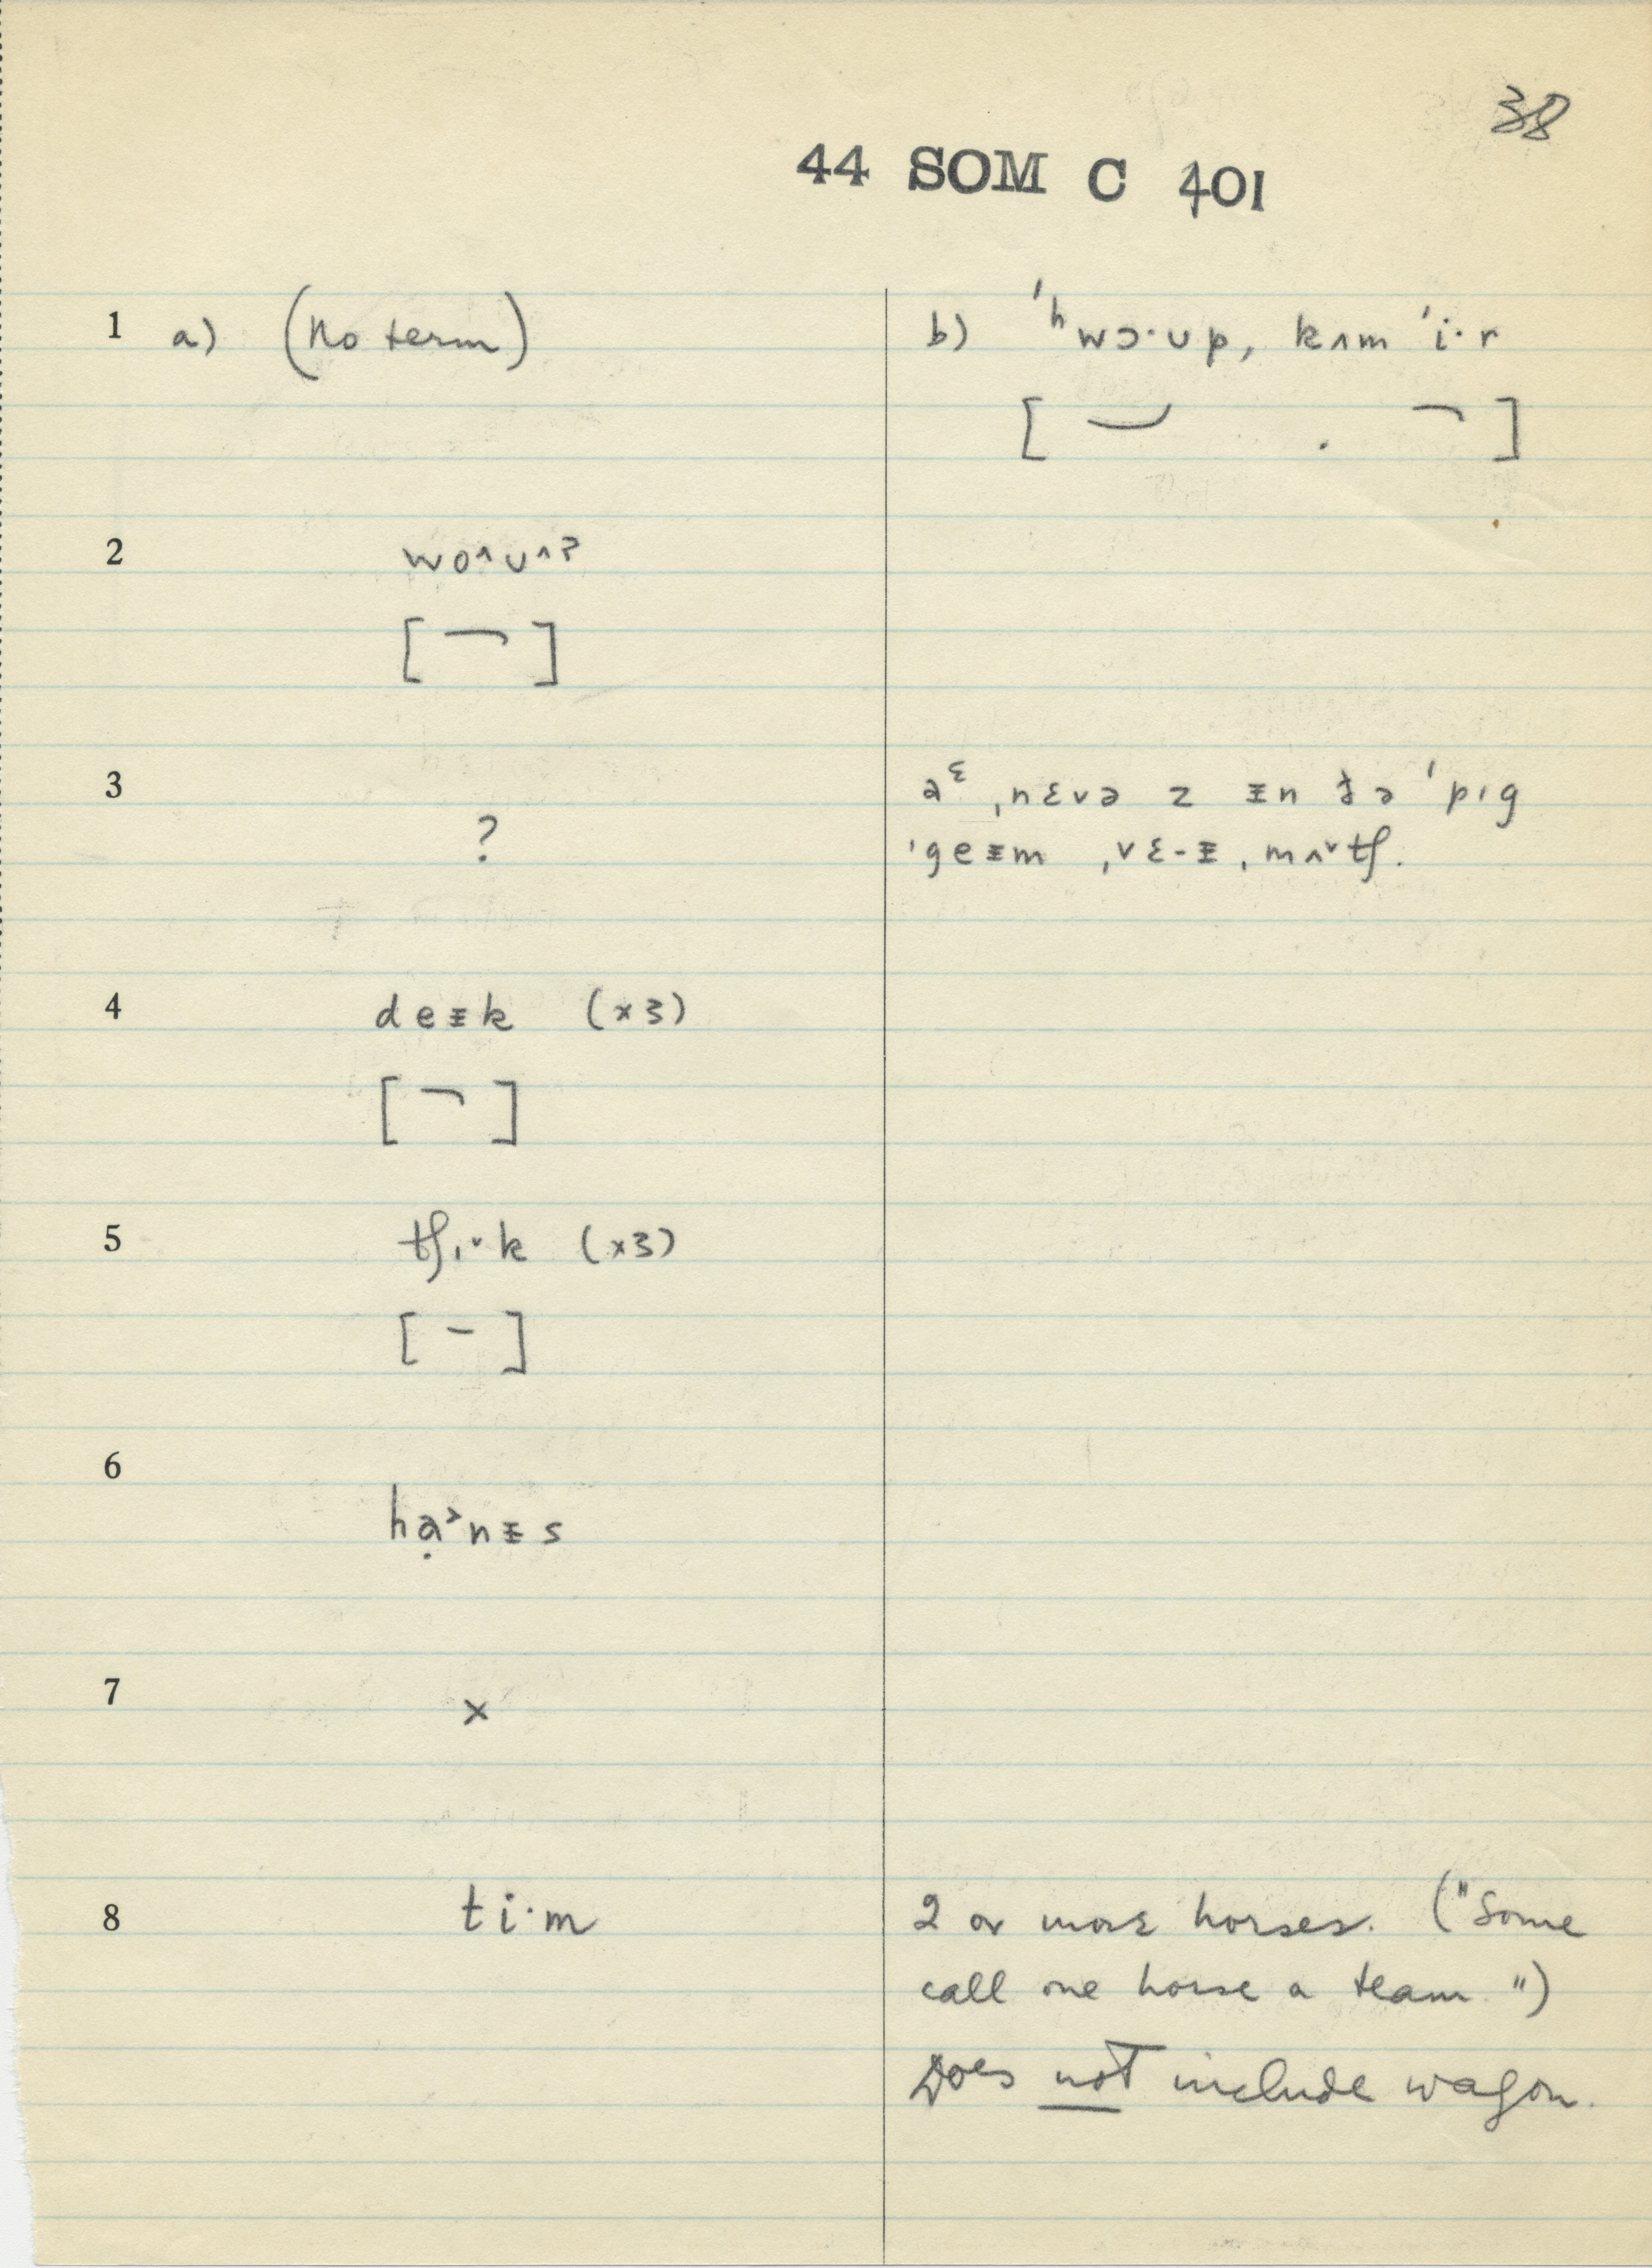 38
44 SOM C 401
1 a) (No term)
b) ˈʰwɔ·ʊp, kʌm ˈi·r
[ . ]
2 wo^ʊ^ʔ
[ ]
3 ?
aᵋ ˌnɛvə z ᵻn ðə ˈpɪg
ˈgeᵻm ˌvɛ-ᵻ ˌmʌˇtʃ.
4 deᵻk (×3)
[ ]
5 tʃɪˇk (×3)
[ ]
6 hạ˃nᵻs
7 ×
8 ti·m
2 or more horses. ("Some
call one horse a team")
Does not include wagon.